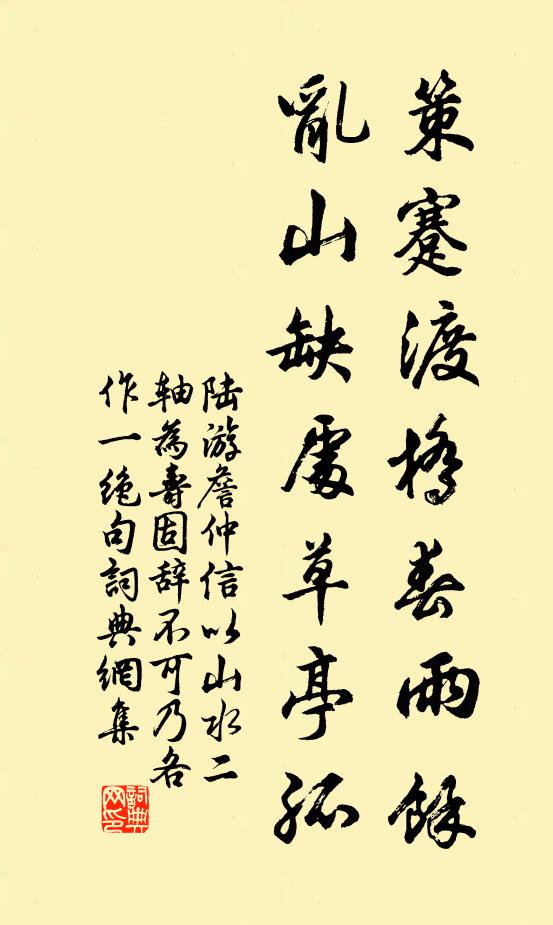 策蹇渡橋春雨餘
亂山缺處草亭孤
陆游詹仲信以山水二
軸為壽固辞不可乃各
作一絶句詞典網集
詞典网印